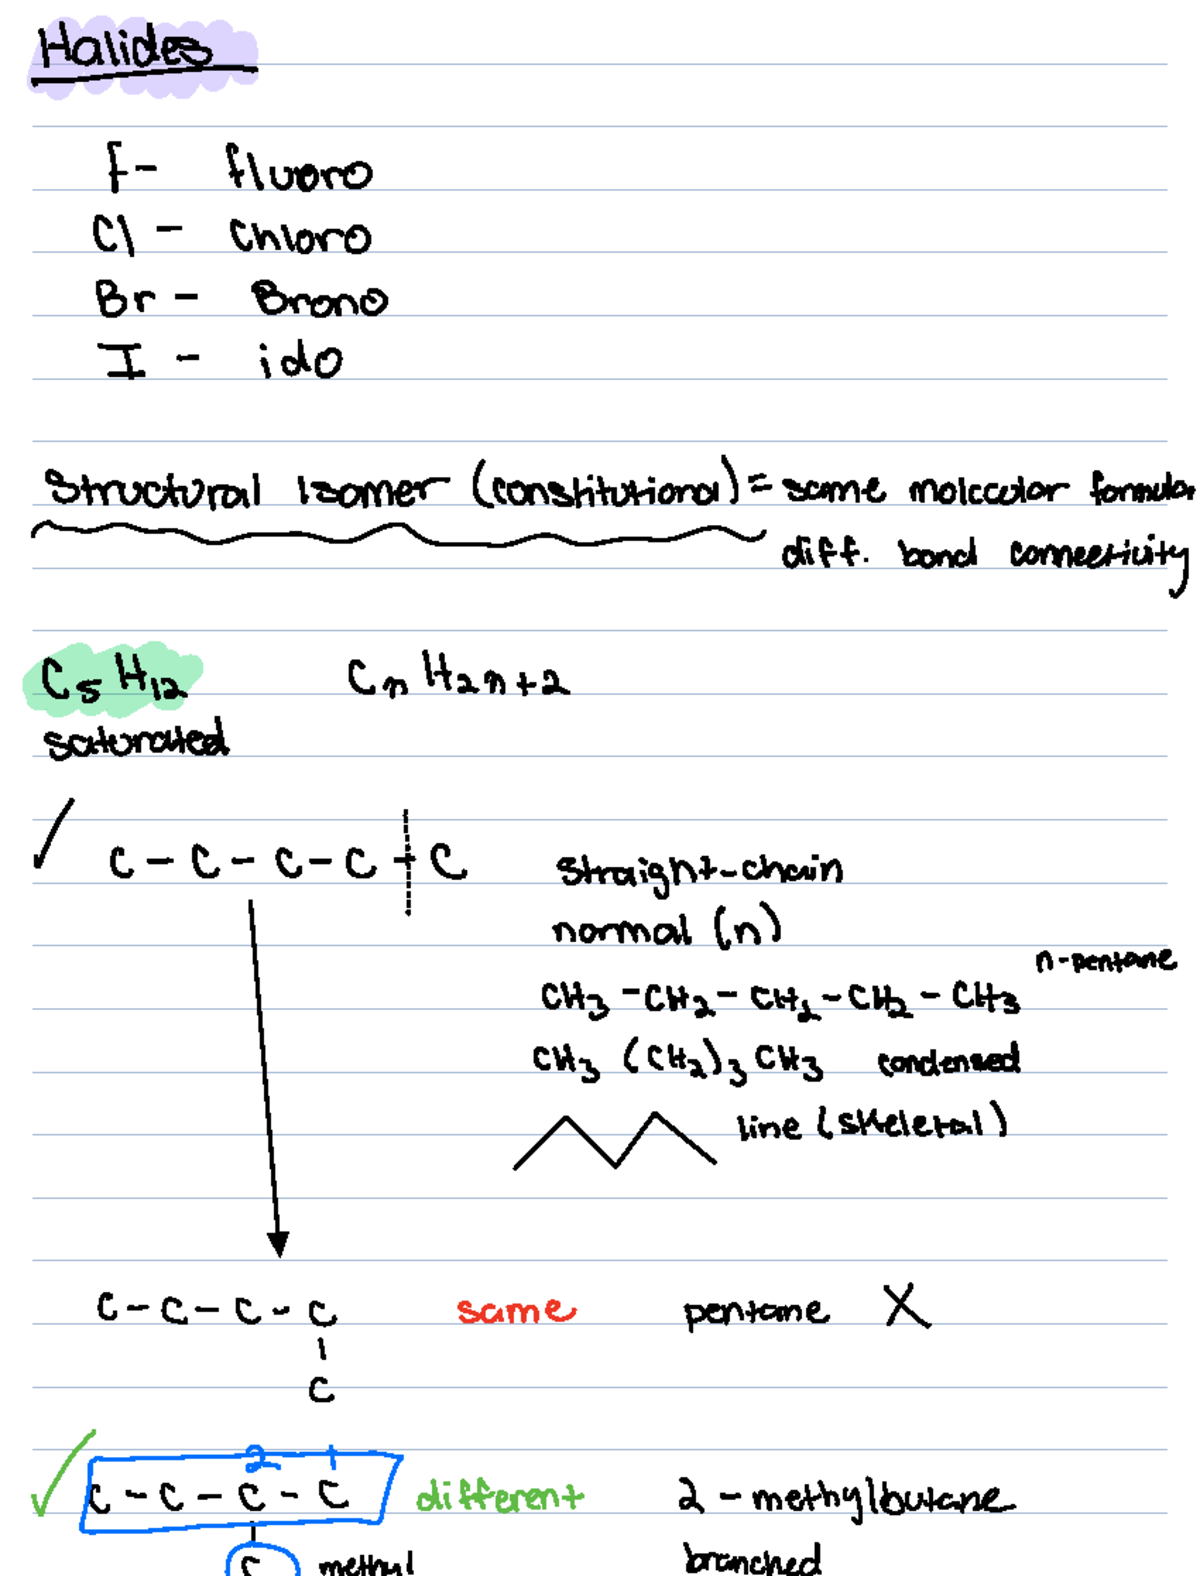 Halides
F- fluoro
Cl - Chloro
Br - Brono
I - ido
Structural Isomer (constitutional) = same moleculor formular
diff. bond connectivity
C₅H₁₂ CₙH₂ₙ₊₂
saturated
✓ C - C - C - C - C straight-chain
normal (n)
n-pentane
CH₃ - CH₂ - CH₂ - CH₂ - CH₃
CH₃ (CH₂)₃ CH₃ condensed
line (skeletal)
C - C - C - C same pentane X
C
2 1
✓ C - C - C - C different 2-methylbutane
C methyl branched